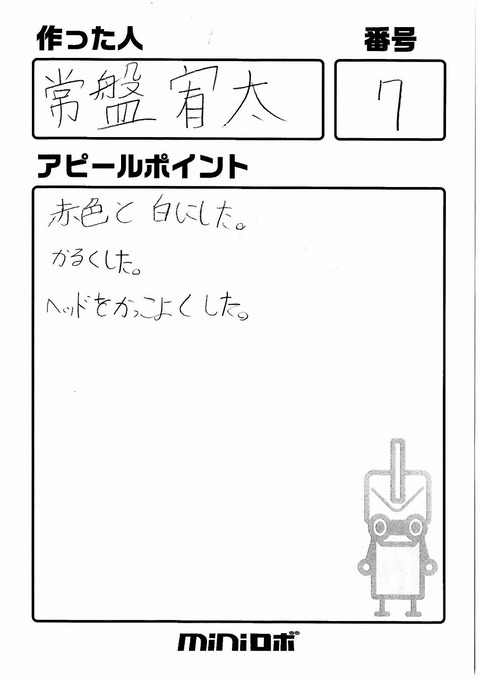 作った人
番号
常盤 宥太
7
アピールポイント
赤色と 白にした。
かるくした。
ヘッドをかっこよくした。
miniロボ